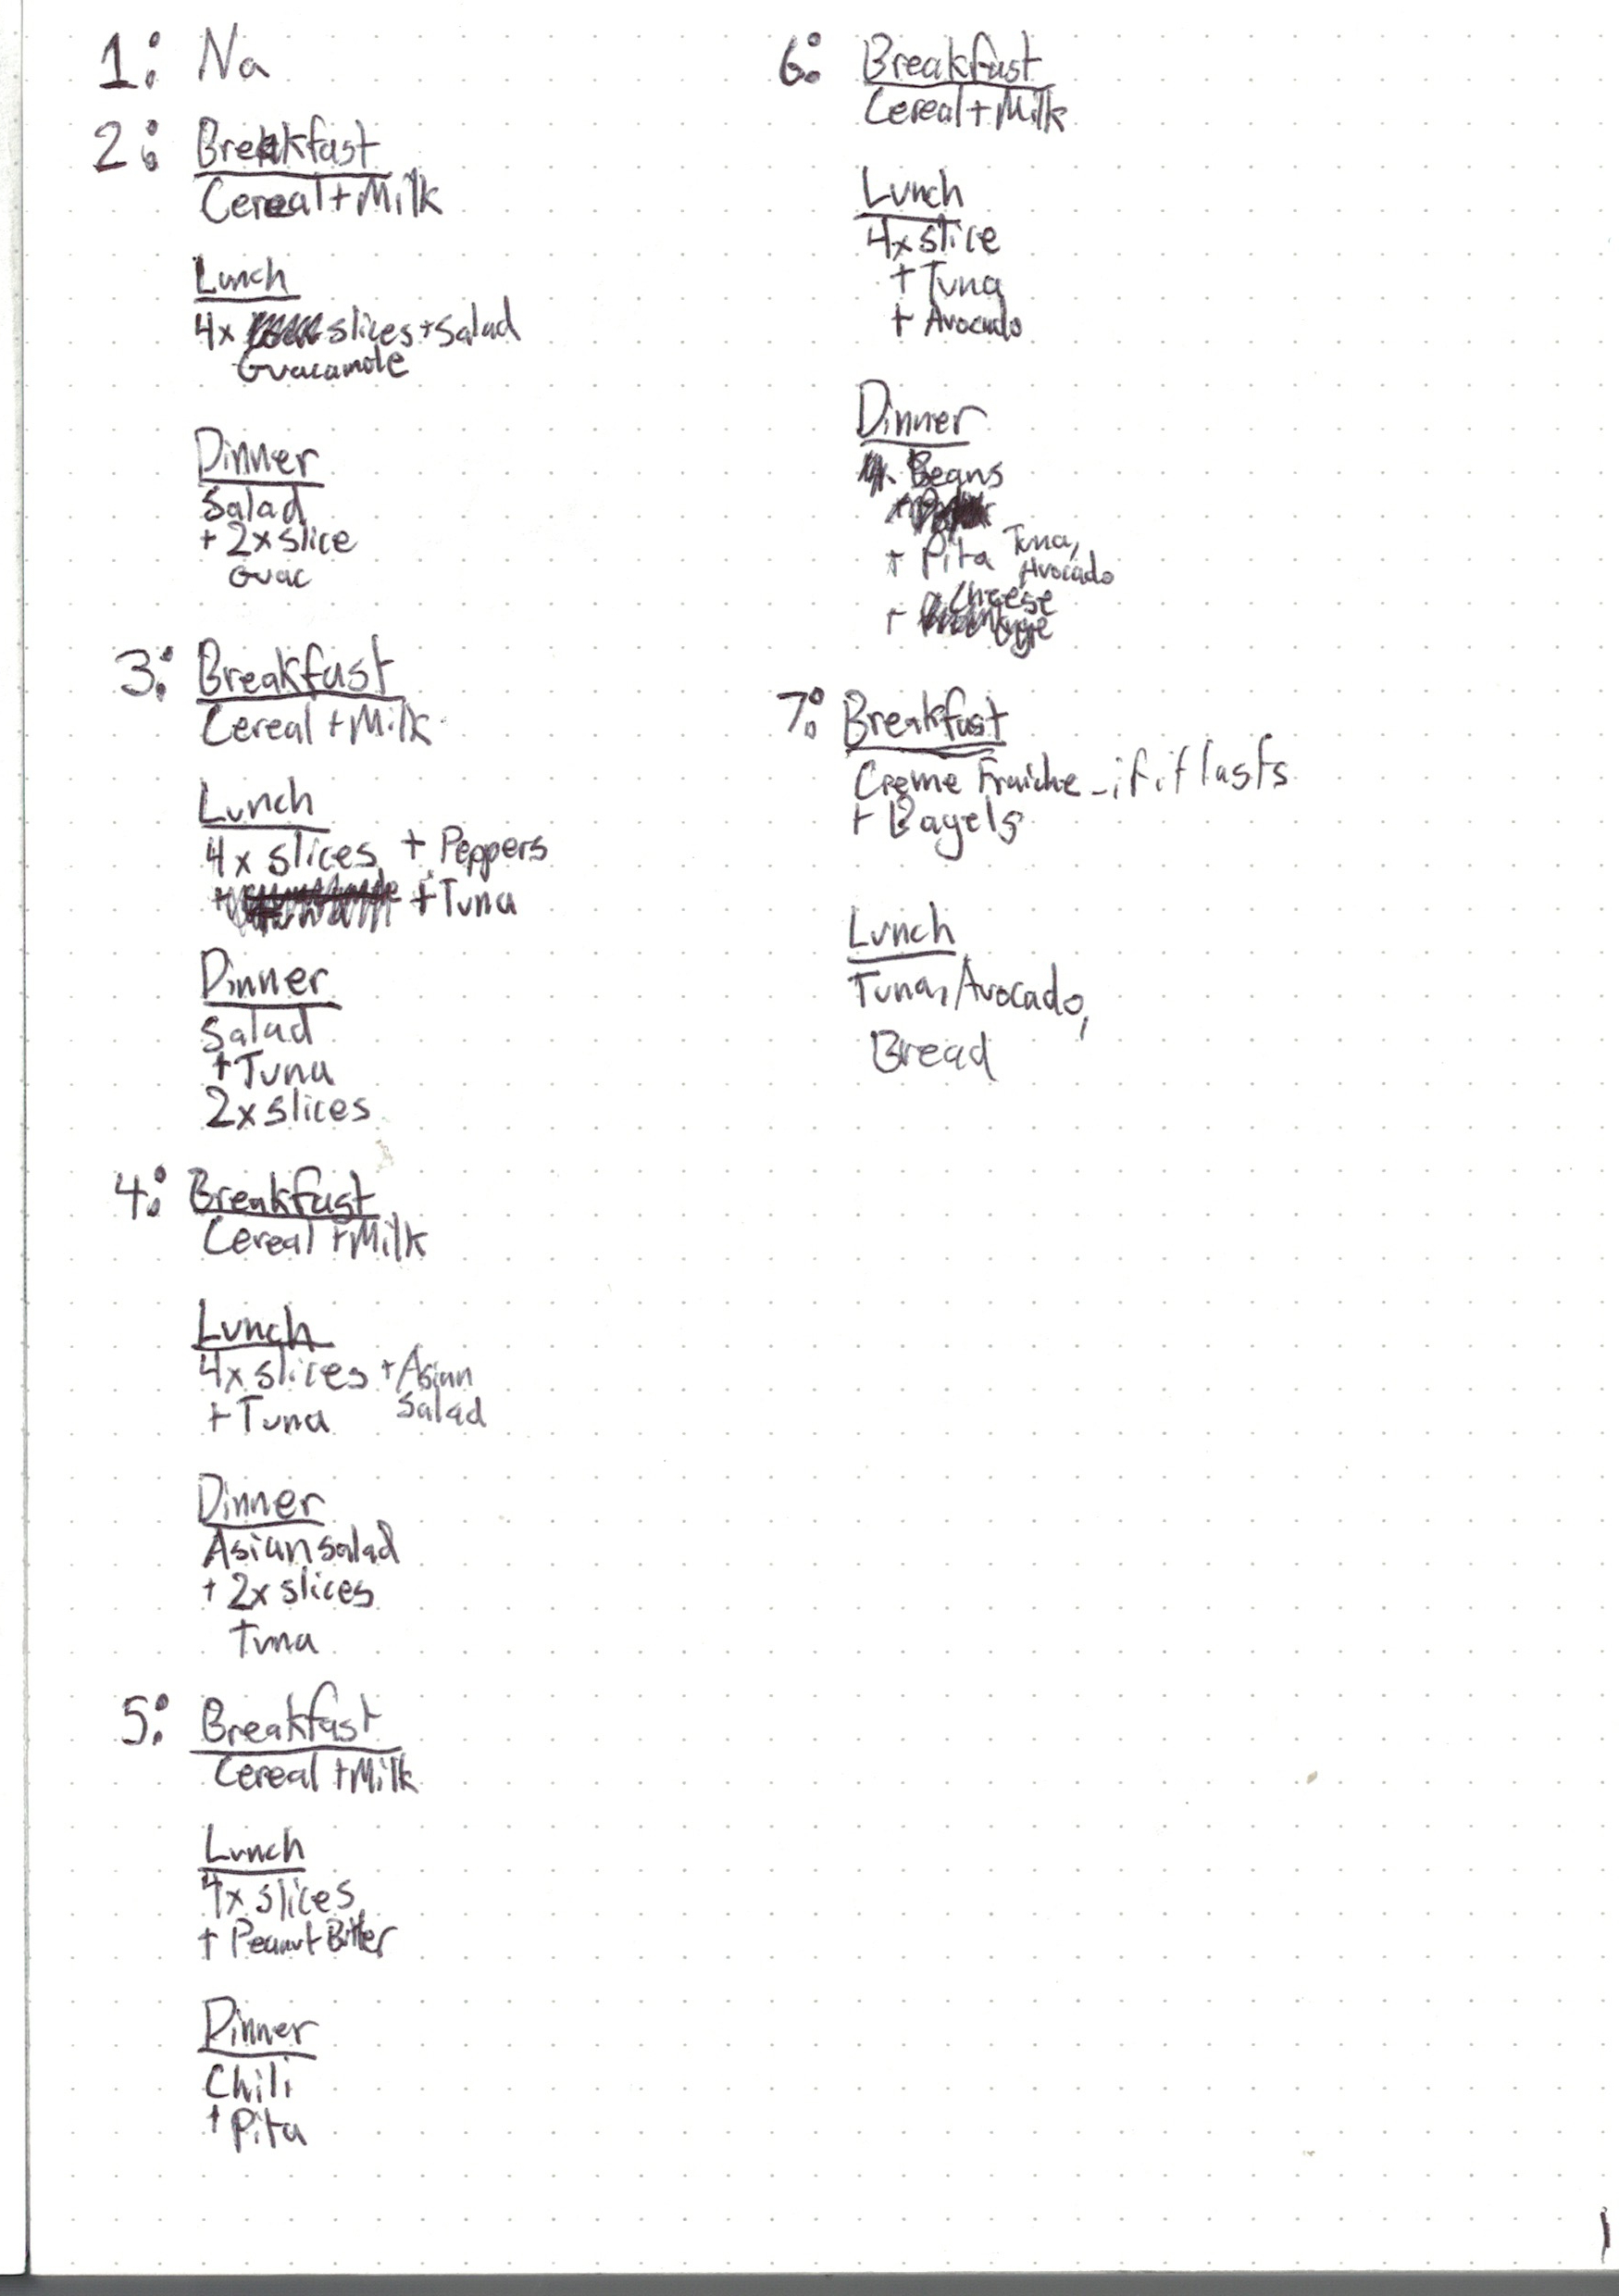 1: Na
2: Breakfast
Cereal + Milk
Lunch
4x slices + Salad
Guacamole
Dinner
Salad
+ 2x slice
Guac
3: Breakfast
Cereal + Milk
Lunch
4x slices + Peppers
+ Tuna
Dinner
Salad
+ Tuna
2x slices
4: Breakfast
Cereal + Milk
Lunch
4x slices + Asian
+ Tuna Salad
Dinner
Asian salad
+ 2x slices
Tuna
5: Breakfast
Cereal + Milk
Lunch
4x slices
+ Peanut Butter
Dinner
Chili
+ Pita
6: Breakfast
Cereal + Milk
Lunch
4x slice
+ Tuna
+ Avocado
Dinner
Beans
+ Pita Tuna,
Avocado
+ Cheese
7: Breakfast
Creme Fraiche - if it lasts
+ Bagels
Lunch
Tuna, Avocado,
Bread